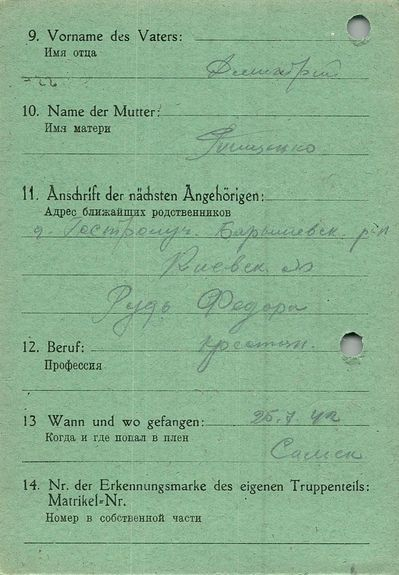 9. Vorname des Vaters:
Имя отца
Дмитрий
10. Name der Mutter:
Имя матери
11. Anschrift der nächsten Angehörigen:
Адрес ближайших родственников
д. Гостролуч. Барышевск. р-н
Киевск.
Рудь Федора
12. Beruf:
крестьян.
Профессия
13 Wann und wo gefangen: 25.7.42
Когда и где попал в плен
14. Nr. der Erkennungsmarke des eigenen Truppenteils:
Matrikel=Nr.
Номер в собственной части